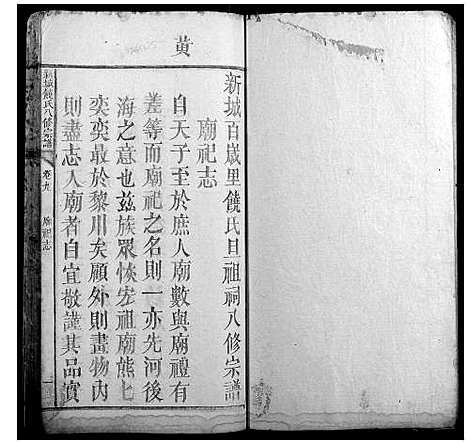 黃
新城百歲里饒氏旦祖祠八修宗譜
廟祀志
自天子至於庶人廟數與廟禮有
差等而廟祀之名則一亦先河後
海之意也茲族眾恢宏祖廟熊七
奕奕最於黎川矣顧外則盡物内
則盡志入廟者自宜敬謹其品賓
新城饒氏八修宗譜
卷九
廟祀志